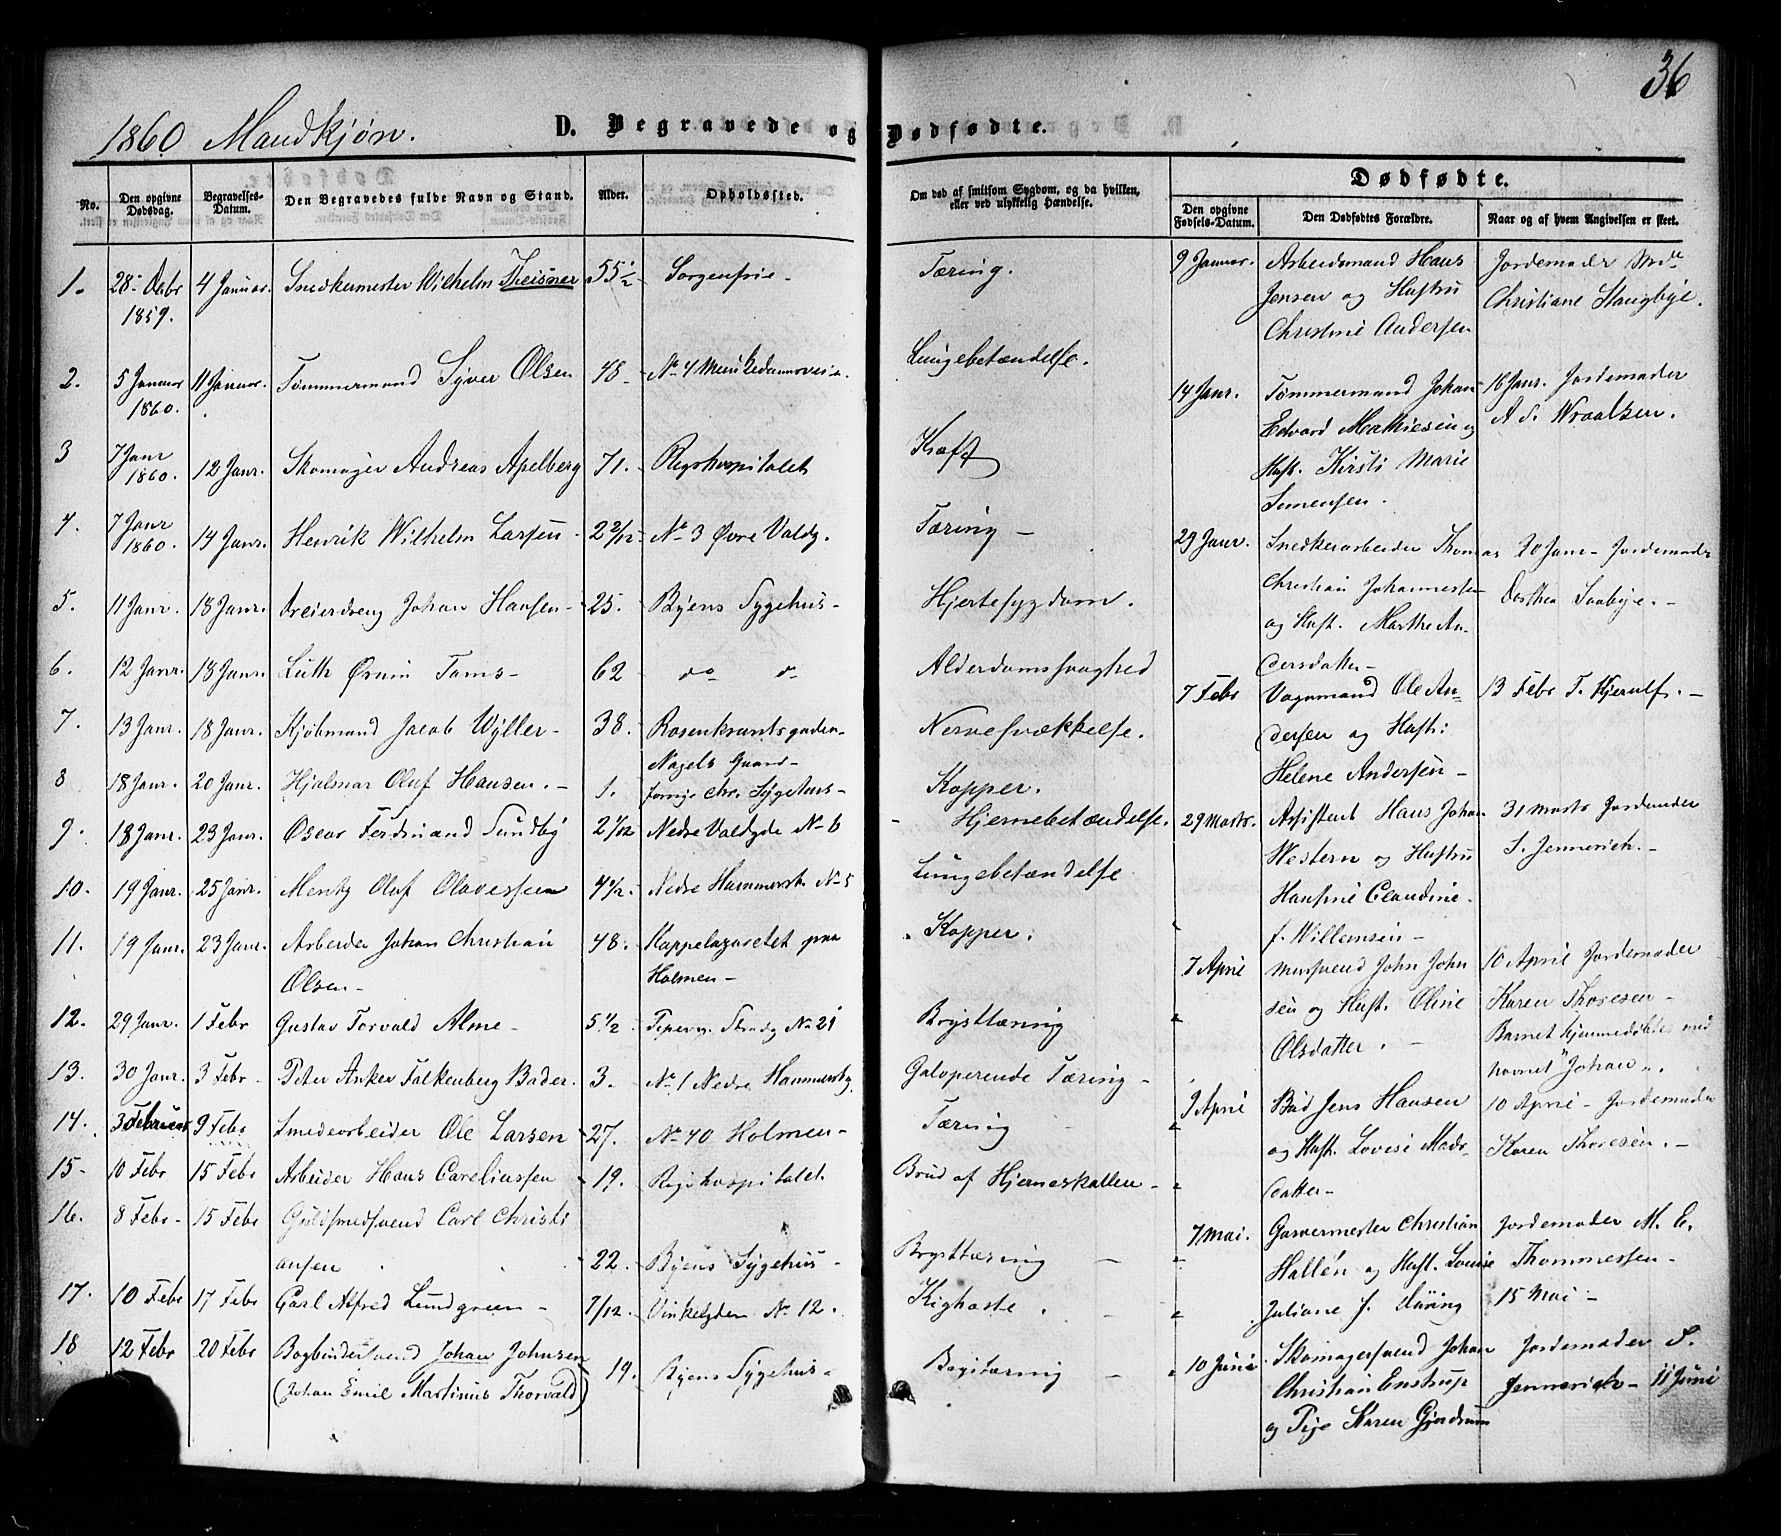 36
1860 Mandkjøn.
D. Begravede og Dødfødte.
No. Den opgivne Dødsdag. Begravelses-Datum. Den Begravedes fulde Navn og Stand. Alder. Opholdssted. Om død af smitsom Sygdom, og da hvilken, eller ved ulykkelig Hændelse.
1. 28 Decbr 1859. 4 Januar. Snedkermester Wilhelm Theisner 55 1/2 Sorgenfrie - Tæring.
2. 5 Januar 1860. 11 Januar. Tømmermand Syver Olsen 48 No 4 Munkedamsveien. Lungebetændelse.
3 7 Janr 1860. 12 Janr. Skomager Andreas Apelberg 71. Rigshospitalet Kræft
4. 7 Janr 1860. 14 Janr. Henrik Wilhelm Larsen 2 2/12 No 3 Øvre Voldg. Tæring -
5. 11 Janr. 18 Janr. Dreierdreng Johan Hansen - 25. Byens Sygehus - Hjertesygdom.
6. 12 Janr. 18 Janr. Tams - 62 do do Alderdomssvaghed
7. 13 Janr. 18 Janr. Kjøbmand Jacob Wyller - 38. Rosenkrantsgaden Nagels Gaard - Nervesvækkelse.
8 18 Janr. 20 Janr. Hjalmar Oluf Hansen. - 1. Chr. Sygehus - Kopper.
9. 18 Janr. 23 Janr. Oscar Ferdinand Sundby 2 1/12 Nedre Voldgde No 6 Hjernebetændelse.
10. 19 Janr. 25 Janr. Mentz Oluf Olavessen 4 1/2. Nedre Hammersb. No 5 Lungebetændelse
11. 19 Janr. 23 Janr. Arbeider Johan Christian Olsen - 48. Koppelazarettet paa Holmen - Kopper.
12. 29 Janr. 1 Febr Gustav Torvald Alme - 5 1/2. Strandg No 21 Brysttæring
13. 30 Janr. 3 Febr - Peter Anker Falkenberg Bader. 3. No 1 Nedre Hammersbg. Galoperende Tæring -
14. 3 Februar 9 Febr Smedearbeider Ole Larsen 27. No 40 Holmen - Tæring
15 - 10 Febr 15 Febr Arbeider Hans Careliussen 19. Rigshospitalet Brud af Hjerneskallen -
16. 8 Febr - 15 Febr Guldsmedsvend Carl Christiansen 22. Byens Sygehus - Brysttæring -
17. 10 Febr 17 Febr Carl Alfred Lundgreen - 7/12. Vinkelgden No 12. Kighoste.
18 12 Febr 20 Febr Bogbindersvend Johan Johnsen (Johan Emil Martinus Thorvald) 19. Byens Sygehus - Brysttæring -
Dødfødte.
Den opgivne Fødsels-Datum. Den Dødfødtes Forældre. Naar og af hvem Angivelsen er skeet.
9 Januar. Arbeidsmand Hans Jensen og Hustru Christine Andersen Jordemoder Christiane Stangbye.
14 Janr. Tømmermand Johan Edvard Mathiesen og Hust. Kirsti Marie Simensen. 16 Janr. Jordemoder A. S. Wraalsen.
29 Janr. Snedkerarbeider Thomas Christian Johannesen og Hust. Marthe Andersdatter - 30 Janr - Jordemoder Dorthea Saabye. -
7 Febr Vognmand Ole Andersen og Hustr: Helene Andersen - 13 Febr T. Kjerulf. -
29 Marts. Assistent Hans Johan Western og Hustru Hansine Claudine f. Willemsen - 31 Marts Jordemoder S. Jennerich. -
7 April Mursvend John Johnsen og Hust. Oline Olsdatter. - 10 April Jordemoder Karen Thoresen - Barnet hjemmedøbtes med navnet "Johan".
9 April Bud Jens Hansen og Hust. Lovise Madsdatter - 10 April - Jordemoder Karen Thoresen. -
7 Mai. Garvermester Christian Hallén og Hust. Louise Juliane f. Jordemoder M. E. Thommessen - 15 Mai -
10 Juni. Skomagersvend Johan Christian Enstrup og Pige Karen Gjødrum Jordemoder S. Jennerich - 11 Juni